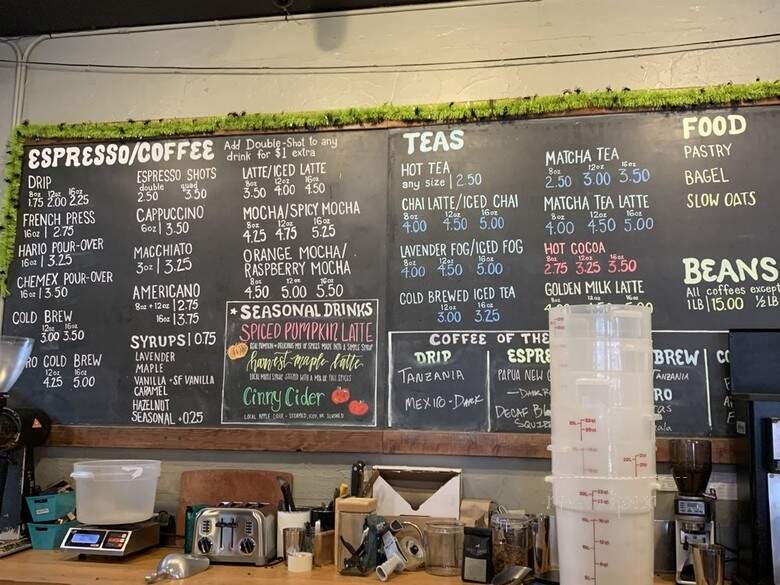 ESPRESSO/COFFEE
Add Double-Shot to any
drink for $1 extra
DRIP
8oz 12oz 16oz
1.75 2.00 2.25
FRENCH PRESS
16oz | 2.75
HARIO POUR-OVER
16oz | 3.25
CHEMEX POUR-OVER
16oz | 3.50
COLD BREW
12oz 16oz
3.00 3.50
RO COLD BREW
12oz 16oz
4.25 5.00
ESPRESSO SHOTS
double quad
2.50 3.50
CAPPUCCINO
6oz | 3.50
MACCHIATO
3oz | 3.25
AMERICANO
8oz + 12oz | 2.75
16oz | 3.75
SYRUPS | 0.75
LAVENDER
MAPLE
VANILLA + SF VANILLA
CARAMEL
HAZELNUT
SEASONAL +0.25
LATTE/ICED LATTE
8oz 12oz 16oz
3.50 4.00 4.50
MOCHA/SPICY MOCHA
8oz 12oz 16oz
4.25 4.75 5.25
ORANGE MOCHA/
RASPBERRY MOCHA
8oz 12oz 16oz
4.50 5.00 5.50
★ SEASONAL DRINKS
SPICED PUMPKIN LATTE
harvest-maple latte
Cinny Cider
TEAS
HOT TEA
any size | 2.50
CHAI LATTE/ICED CHAI
8oz 12oz 16oz
4.00 4.50 5.00
LAVENDER FOG/ICED FOG
8oz 12oz 16oz
4.00 4.50 5.00
COLD BREWED ICED TEA
12oz 16oz
3.00 3.25
MATCHA TEA
8oz 12oz 16oz
2.50 3.00 3.50
MATCHA TEA LATTE
8oz 12oz 16oz
4.00 4.50 5.00
HOT COCOA
8oz 12oz 16oz
2.75 3.25 3.50
GOLDEN MILK LATTE
FOOD
PASTRY
BAGEL
SLOW OATS
BEANS
All coffees except
1LB | 15.00 ½LB
COFFEE OF THE
DRIP
TANZANIA
MEXICO - DARK
ESPRE
PAPUA NEW
DECAF
BREW
TANZANIA
RO